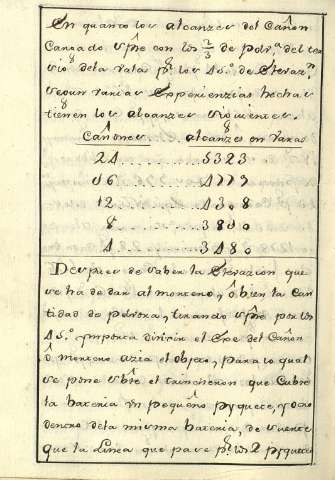 En quanto los alcanzes del Cañon
Cargado spre con los 2/3 de polvª del
dela vala pr los 45º de Elevazn
segun varias Experienzias hechas
tienen los alcanzes siguientes.
Cañones alcanzes en varas
24 5323
16
12 4308
8 3800
4 3480
Despues de saber la Elevazion que
se ha de dar al mortero, ô bien la Can
tidad de polvora, tirando spre por los
45º ymporta dirixir el Exe del Cañon
ô mortero azia el objeto, para lo qual
se pone sbre el trincheron que Cubre
la bateria Un pequeño pyquete, y otro
dentro dela misma bateria, de suerte
que la Linea que pase pr los 2 pyquetes